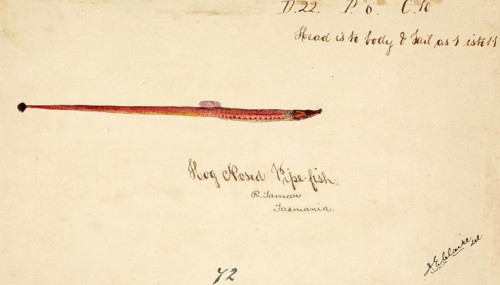 D.22. P. 6. C. 10
Head is to body & tail as 1 is to 11
Hog Nosed Pipe-fish.
R. Tamar
Tasmania.
72